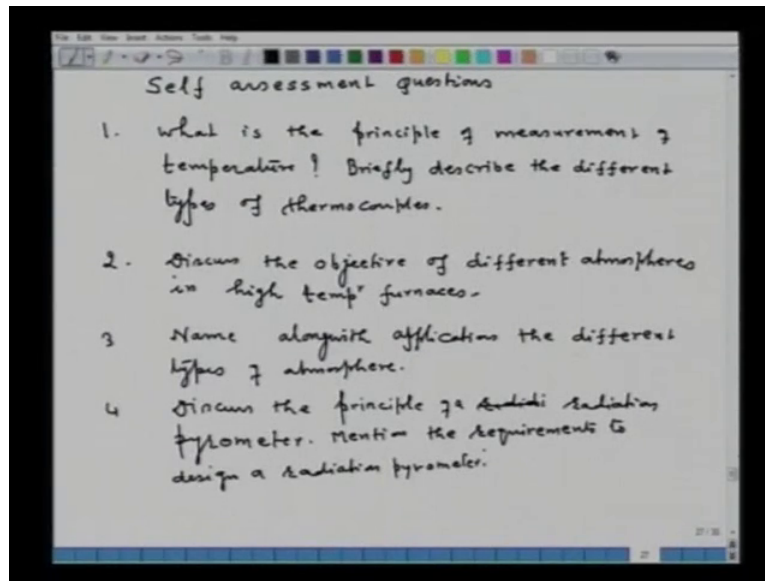 File Edit View Insert Actions Tools Help
Self assessment questions
1. What is the principle of measurement of
temperature? Briefly describe the different
types of thermocouples.
2. Discuss the objective of different atmospheres
in high tempr furnaces.
3 Name alongwith application the different
types of atmosphere.
4 Discuss the principle of a radiation
pyrometer. Mention the requirements to
design a radiation pyrometer.
27